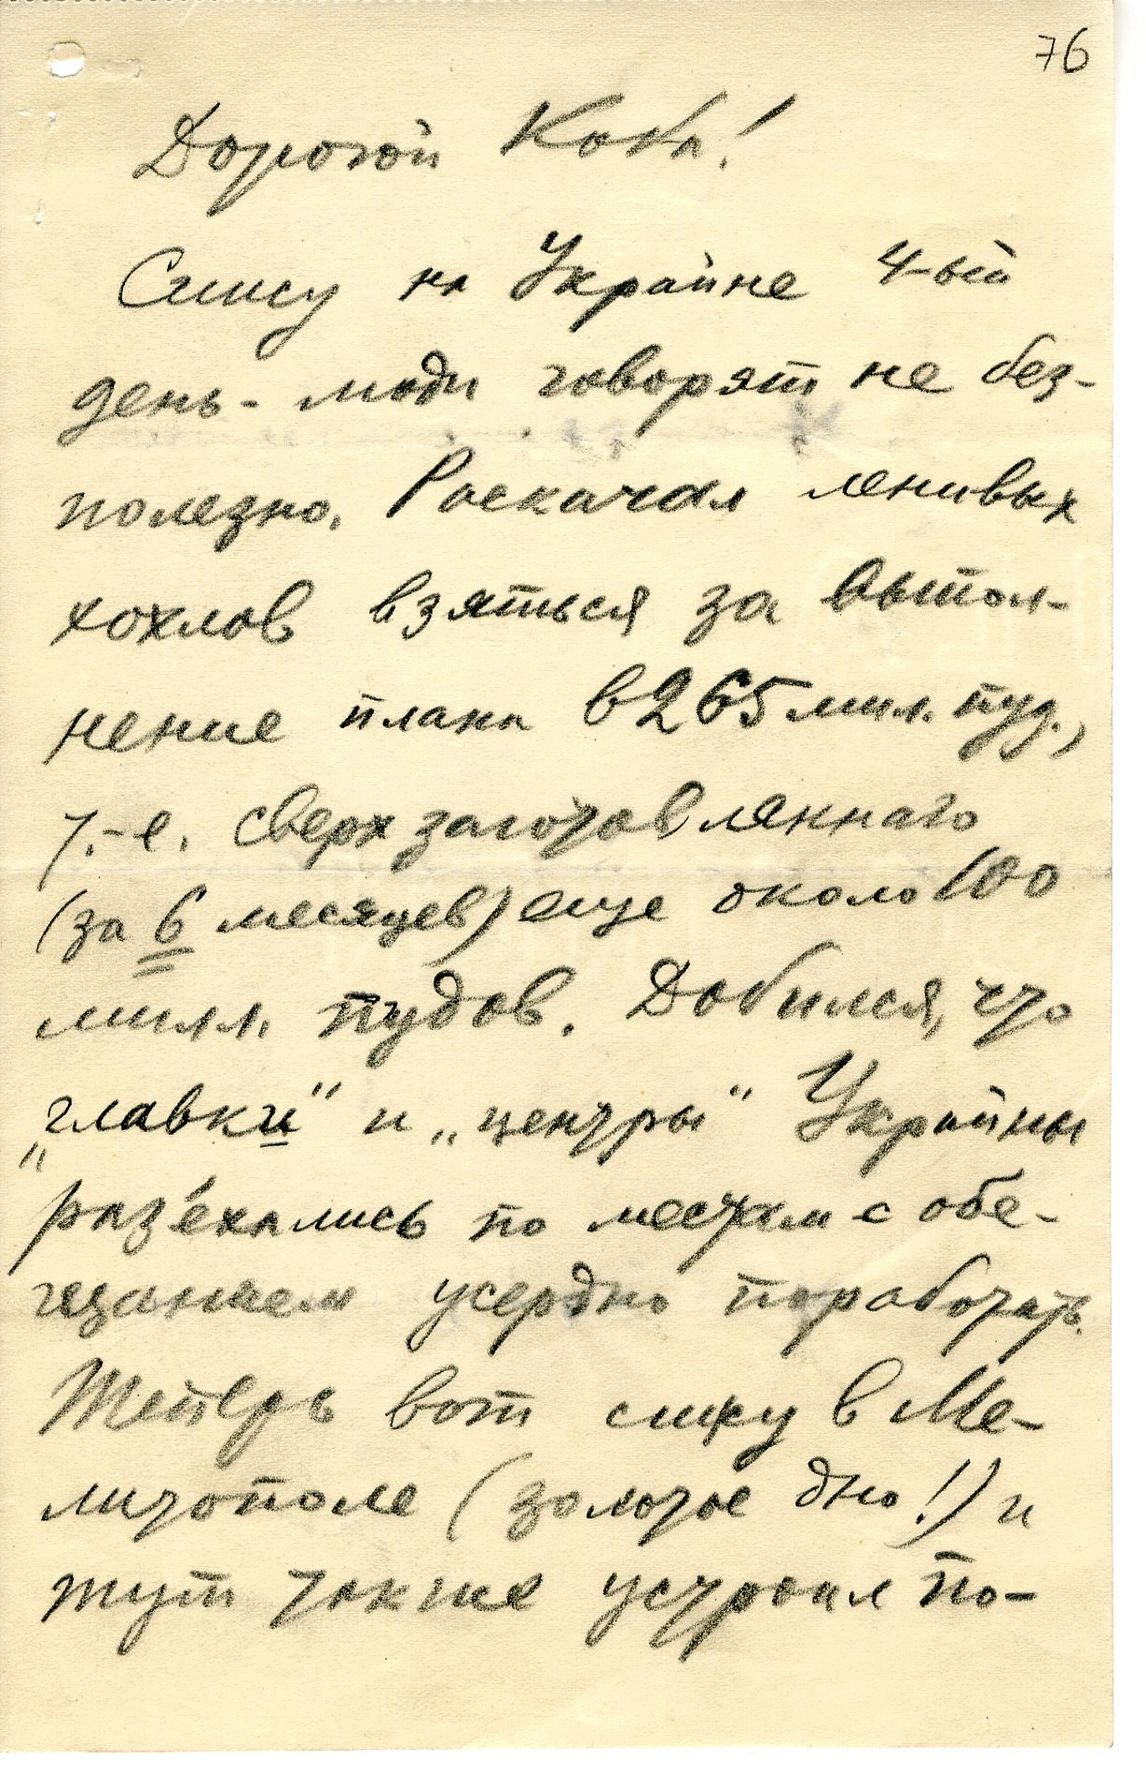 76
Дорогой Коба!
Сижу на Украйне 4-ый
день - люди говорят не без-
полезно. Раскачал ленивых
хохлов взяться за выпол-
нение плана в 265 мил. пуд.,
т.-е. сверх заготовленнаго
(за 6 месяцев) еще около 100
милл. пудов. Добился, что
„главки" и „центры" Украйны
раз'ехались по местам с обе-
щанием усердно поработать.
Теперь вот сижу в Ме-
литополе (золотое дно!) и
тут также устроил по-